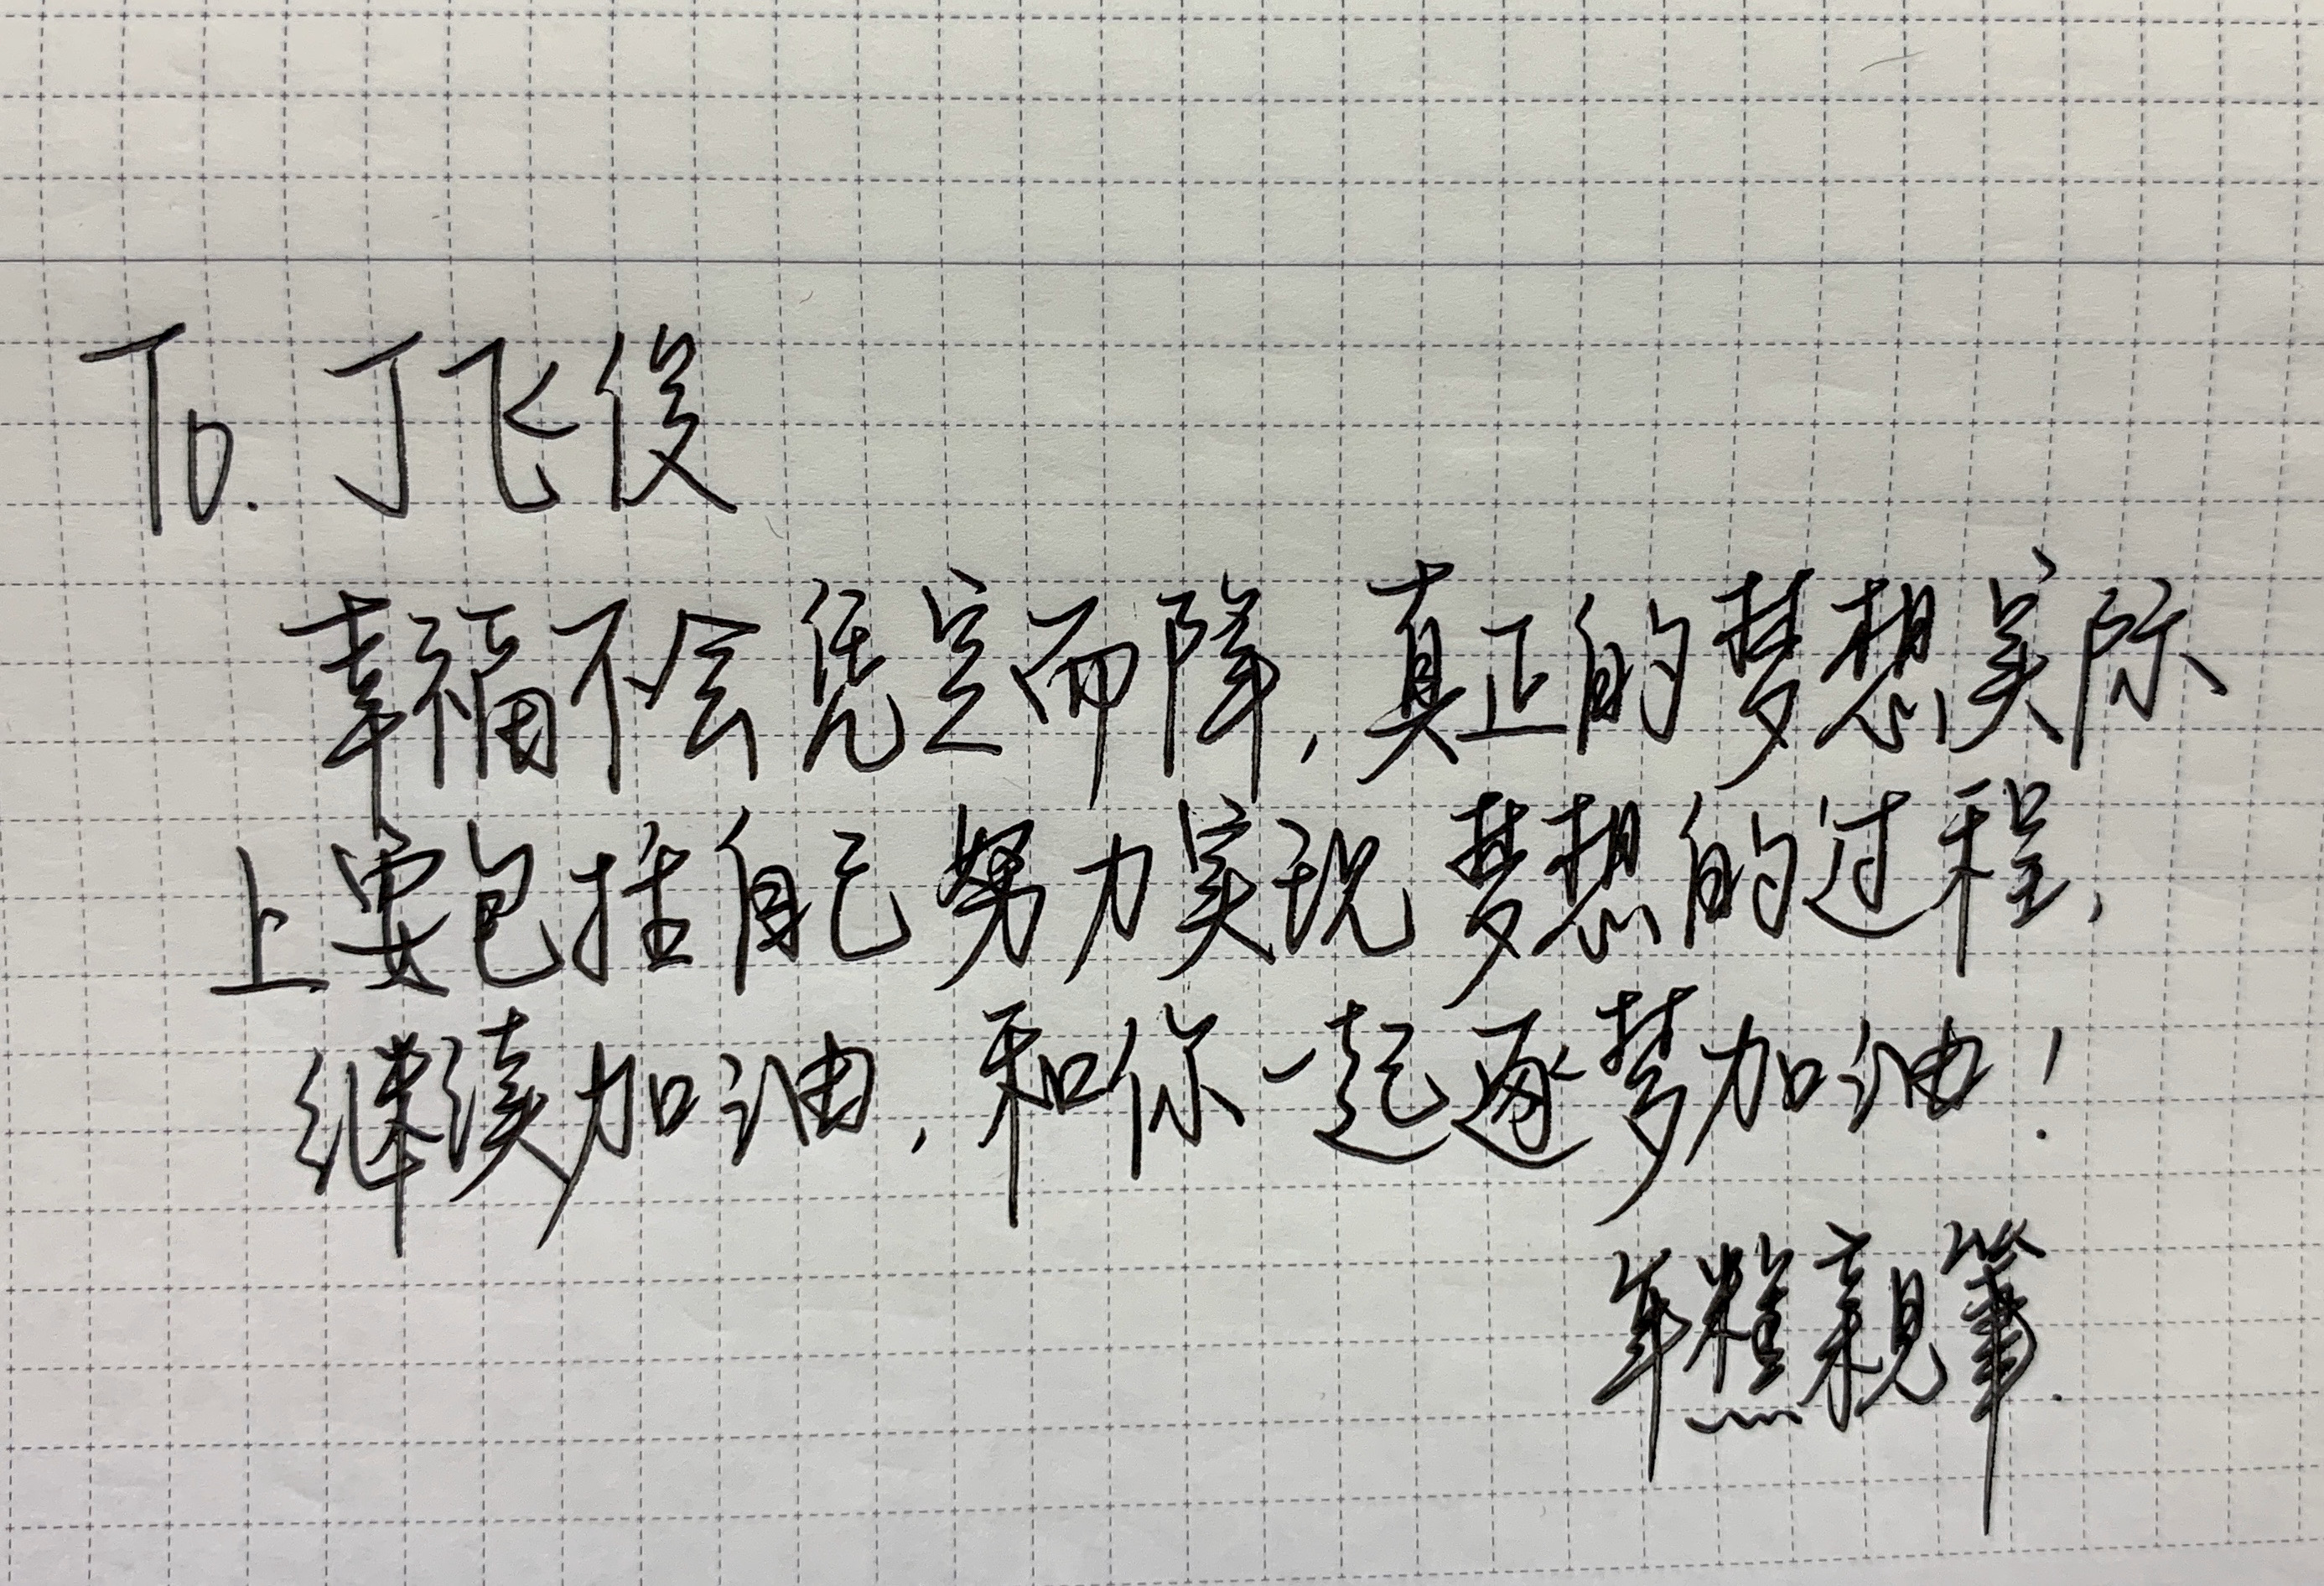 To. 丁飞俊
幸福不会凭空而降,真正的梦想实际
上要包括自己努力实现梦想的过程,
继续加油,和你一起逐梦加油!
年糕親筆.